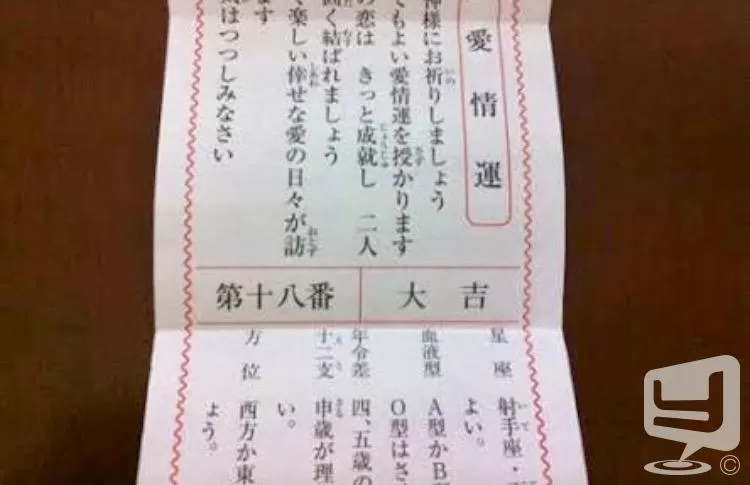 愛情運
神様にお祈りしましょう
てもよい愛情運を授かります
の恋は きっと成就し 二人
固く結ばれましょう
く楽しい倖せな愛の日々が訪
ます
気はつつしみなさい
大吉
第十八番
星座
射手座・
よい。
血液型
A型かB
O型はさ
年令差
四、五歳の
十二支
申歳が理
い。
方位
西方か東
ょう。